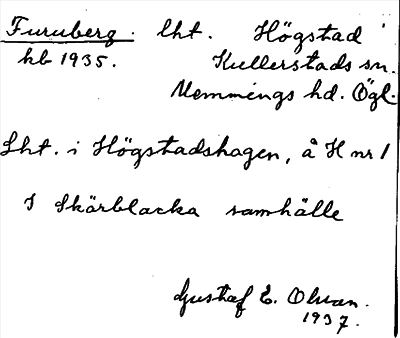 Furuberg. lht. Högstad
kb 1935. Kullerstads sn.
Memmings hd. Ögl.
Lht. i Högstadshagen, å H nr 1
I Skärblacka samhälle
Gustaf E. Olsson.
1937.